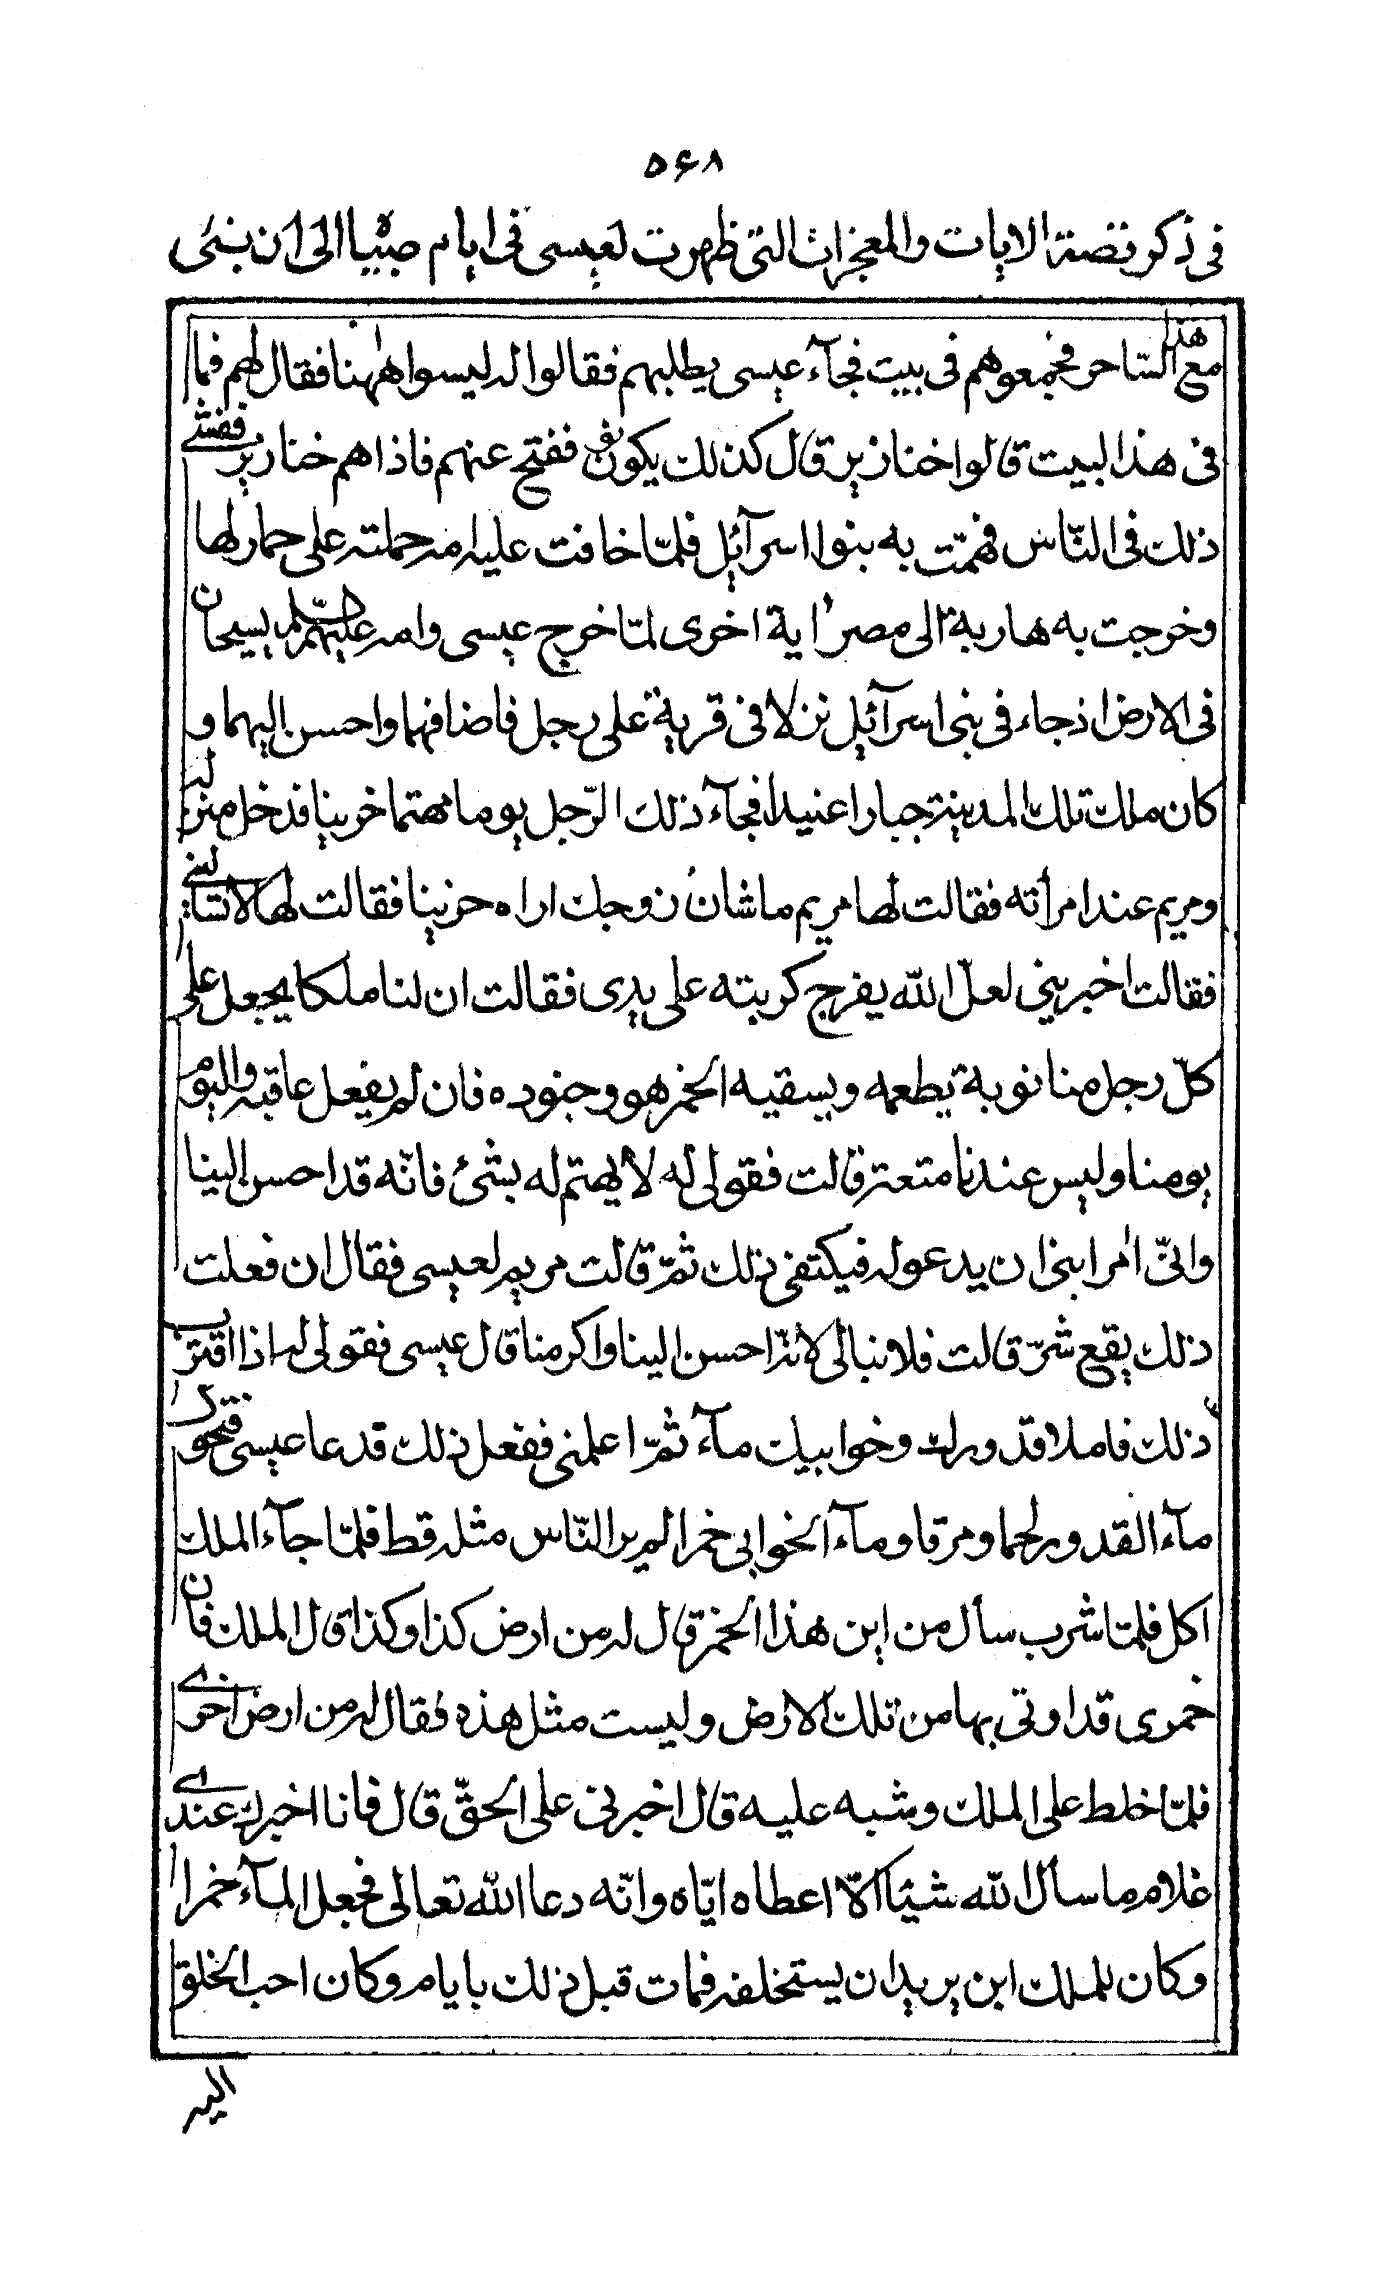 ۵۶۸
فی ذکر قصة الایات والمعجزات التی ظهرت لعیسی فی ایام صبیا الی ان نبئ
مع هذا السّاحر فجمعوهم فی بیت فجآء عیسی یطلبهم فقالوا له لیسوا هٰهنا فقال لهم فما
فی هذا البیت قالوا خنازیر قال کذلك یکونون ففتح عنهم فاذا هم خنازیر ففشی
ذلك فی النّاس فهمّت به بنوا اسرآئیل فلمّا خافت علیه امه حملته علی حمار لها
وخرجت به هاربة الی مصر ایة اخری لمّا خرج عیسی وامه علیهما السّلم یسیحان
فی الارض اذ جاء فی بنی اسرآئیل نزلا فی قریة علی رجل فاضافهما واحسن الیهما و
کان ملك تلك المدینة جبارا عنیدا فجآء ذلك الرّجل یوما مهتما حزینا فدخل منزله
ومریم عند امرأته فقالت لها مریم ما شان زوجك اراه حزینا فقالت لها لا تسألینی
فقالت اخبرینی لعلّ الله یفرج کربته علی یدی فقالت ان لنا ملکا یجعل علی
کلّ رجل منا نوبة یطعمه ویسقیه الخمر هو وجنوده فان لم یفعل عاقبه والیوم
یومنا ولیس عندنا متعة قالت فقولی له لا یهتم له بشئ فانّه قد احسن الینا
وانّی امر ابنی ان یدعو له فیکتفی ذلك ثمّ قالت مریم لعیسی فقال ان فعلت
ذلك یقع شرّ قالت فلا تبالی لانّه احسن الینا واکرمنا قال عیسی فقولی له اذا اقترب
ذلك فاملا قدورك وخوابیك مآء ثمّ اعلمنی ففعل ذلك فدعا عیسی فتحول
مآء القدور لحما ومرقا ومآء الخوابی خمرا لم یر النّاس مثله قط فلمّا جآء الملك
اکل فلمّا شرب سأل من این هذا الخمر قال له من ارض کذا وکذا قال الملك فان
خمری قد اوتی بها من تلك الارض ولیست مثل هذه فقال له من ارض اخری
فلمّا خلط علی الملك وشبه علیه قال اخبرنی علی الحقّ قال فانا اخبرك عندی
غلام ما سأل الله شیئا الّا اعطاه ایّاه وانّه دعا الله تعالی فجعل المآء خمرا
وکان للملك ابن یرید ان یستخلفه فمات قبل ذلك بایام وکان احب الخلق
الیه